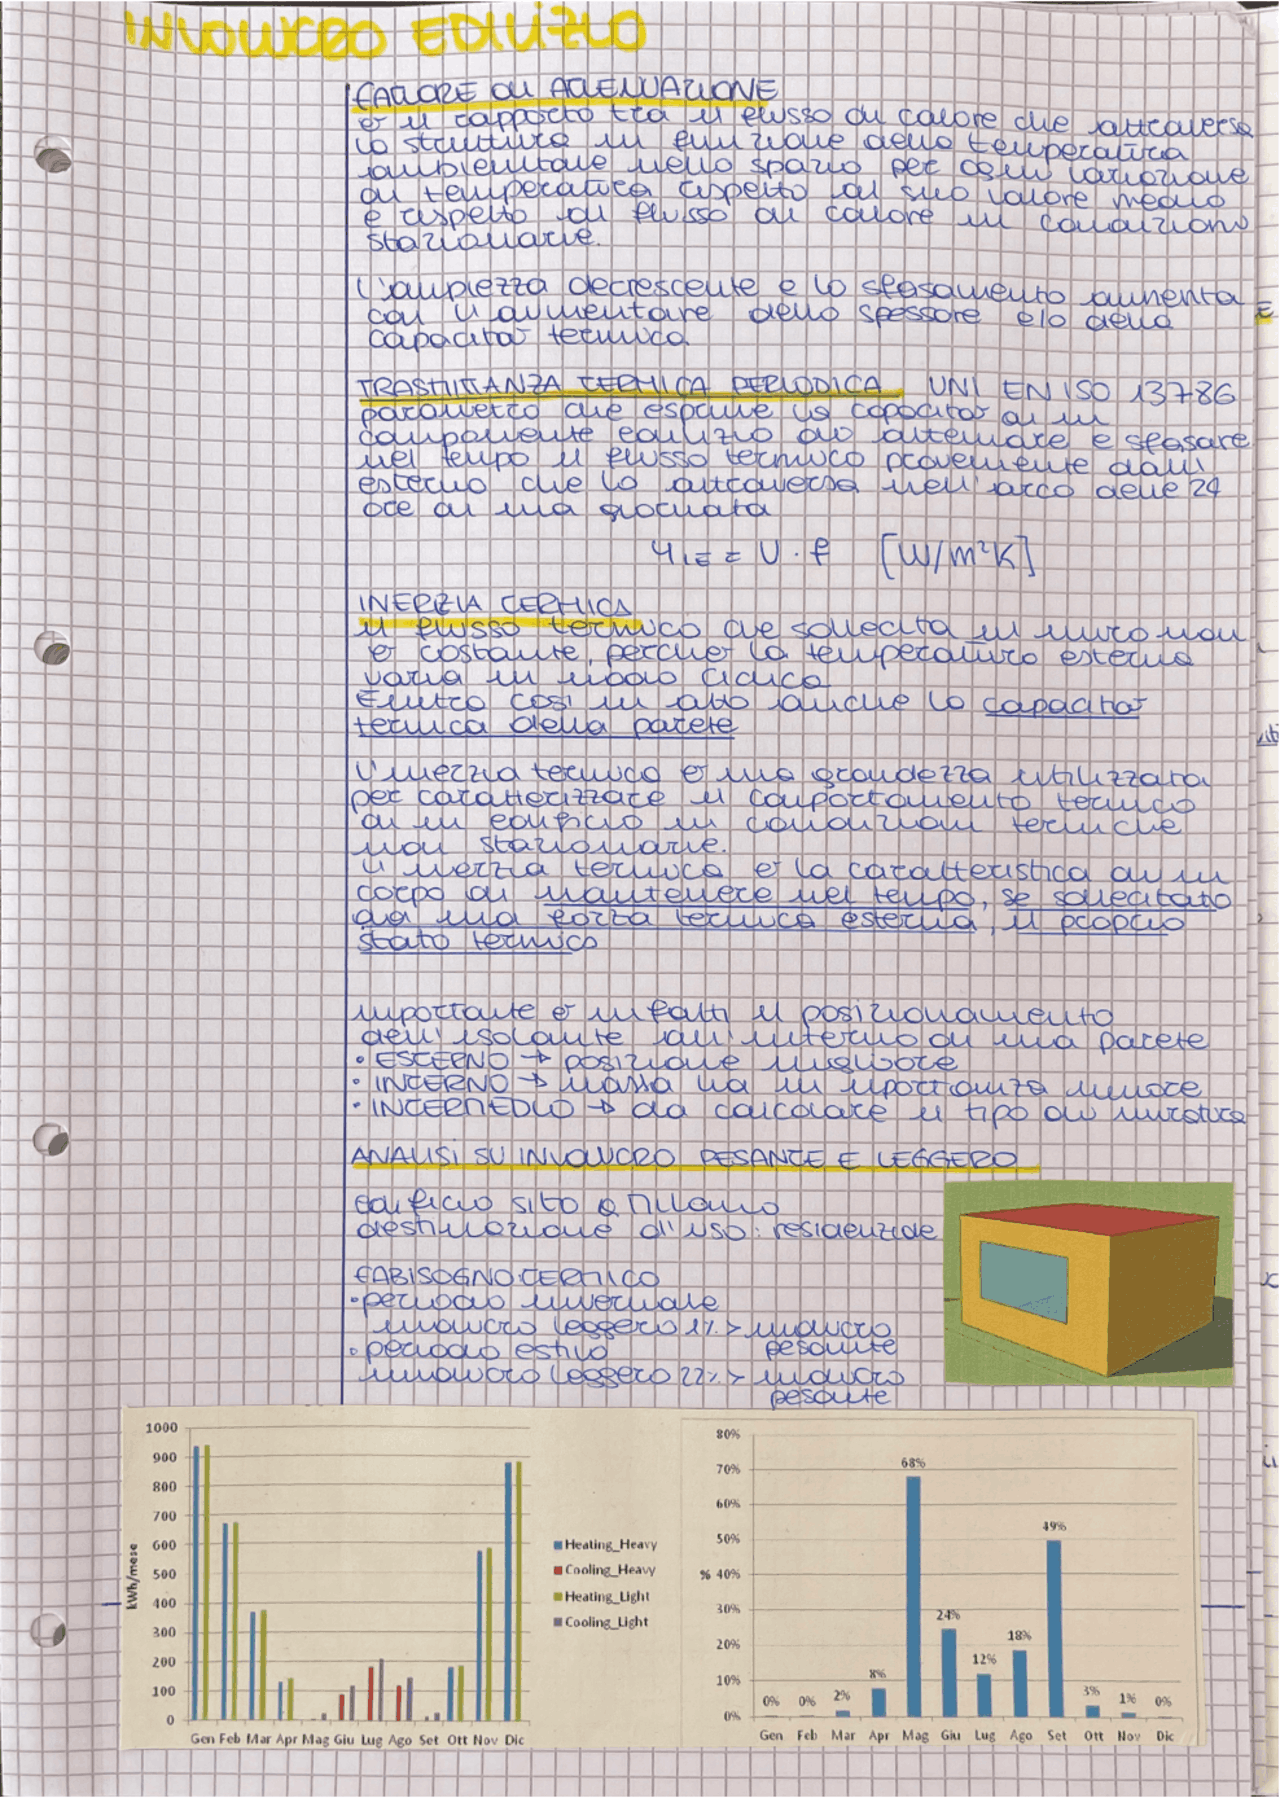 INVOLUCRO EDILIZIO
FATTORE DI ATTENUAZIONE
è il rapporto tra il flusso di calore che attraversa
la struttura in funzione della temperatura
ambientale nello spazio per ogni variazione
di temperatura rispetto al suo valore medio
e rispetto al flusso di calore in condizioni
stazionarie.
L'ampiezza decrescente e lo sfasamento aumenta
con l'aumentare dello spessore e/o della
capacità termica
TRASMITTANZA TERMICA PERIODICA UNI EN ISO 13786
parametro che esprime la capacità di un
componente edilizio di attenuare e sfasare
nel tempo il flusso termico proveniente dall'
esterno che lo attraversa nell'arco delle 24
ore di una giornata
YIE = U · f [W/m²K]
INERZIA TERMICA
il flusso termico che sollecita un muro non
è costante, perché la temperatura esterna
varia in modo ciclico
Entra così in atto anche la capacità
termica della parete
L'inerzia termica è una grandezza utilizzata
per caratterizzare il comportamento termico
di un edificio in condizioni termiche
non stazionarie.
L'inerzia termica è la caratteristica di un
corpo di mantenere nel tempo, se sollecitato
da una forza termica esterna, il proprio
stato termico
importante è infatti il posizionamento
dell'isolante all'interno di una parete
• ESTERNO → posizione migliore
• INTERNO → massa ha un importanza minore
• INTERMEDIO → da calcolare il tipo di muratura
ANALISI SU INVOLUCRO PESANTE E LEGGERO
edificio sito a Milano
destinazione d'uso: residenziale
FABISOGNO TERMICO
• periodo invernale
involucro leggero 1% > involucro
pesante
• periodo estivo
involucro leggero 22% > involucro
pesante
1000
900
800
700
600
500
400
300
200
100
0
kWh/mese
Gen Feb Mar Apr Mag Giu Lug Ago Set Ott Nov Dic
Heating_Heavy
Cooling_Heavy
Heating_Light
Cooling_Light
80%
70%
60%
50%
% 40%
30%
20%
10%
0%
0% 0% 2% 8% 68% 24% 12% 18% 49% 3% 1% 0%
Gen Feb Mar Apr Mag Giu Lug Ago Set Ott Nov Dic